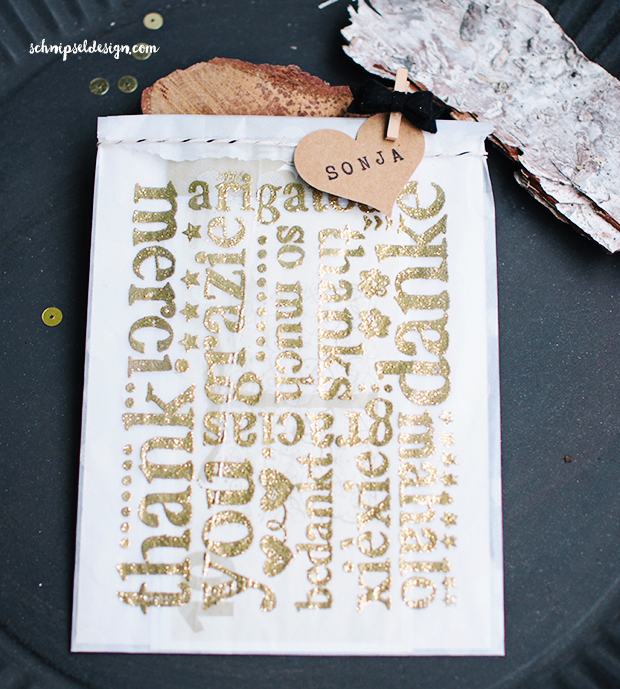 schnipseldesign.com
SONJA
arigato
merci
grazie
so much
thanks
danke
thank
you
gracias
bedankt
xiexie
mahalo